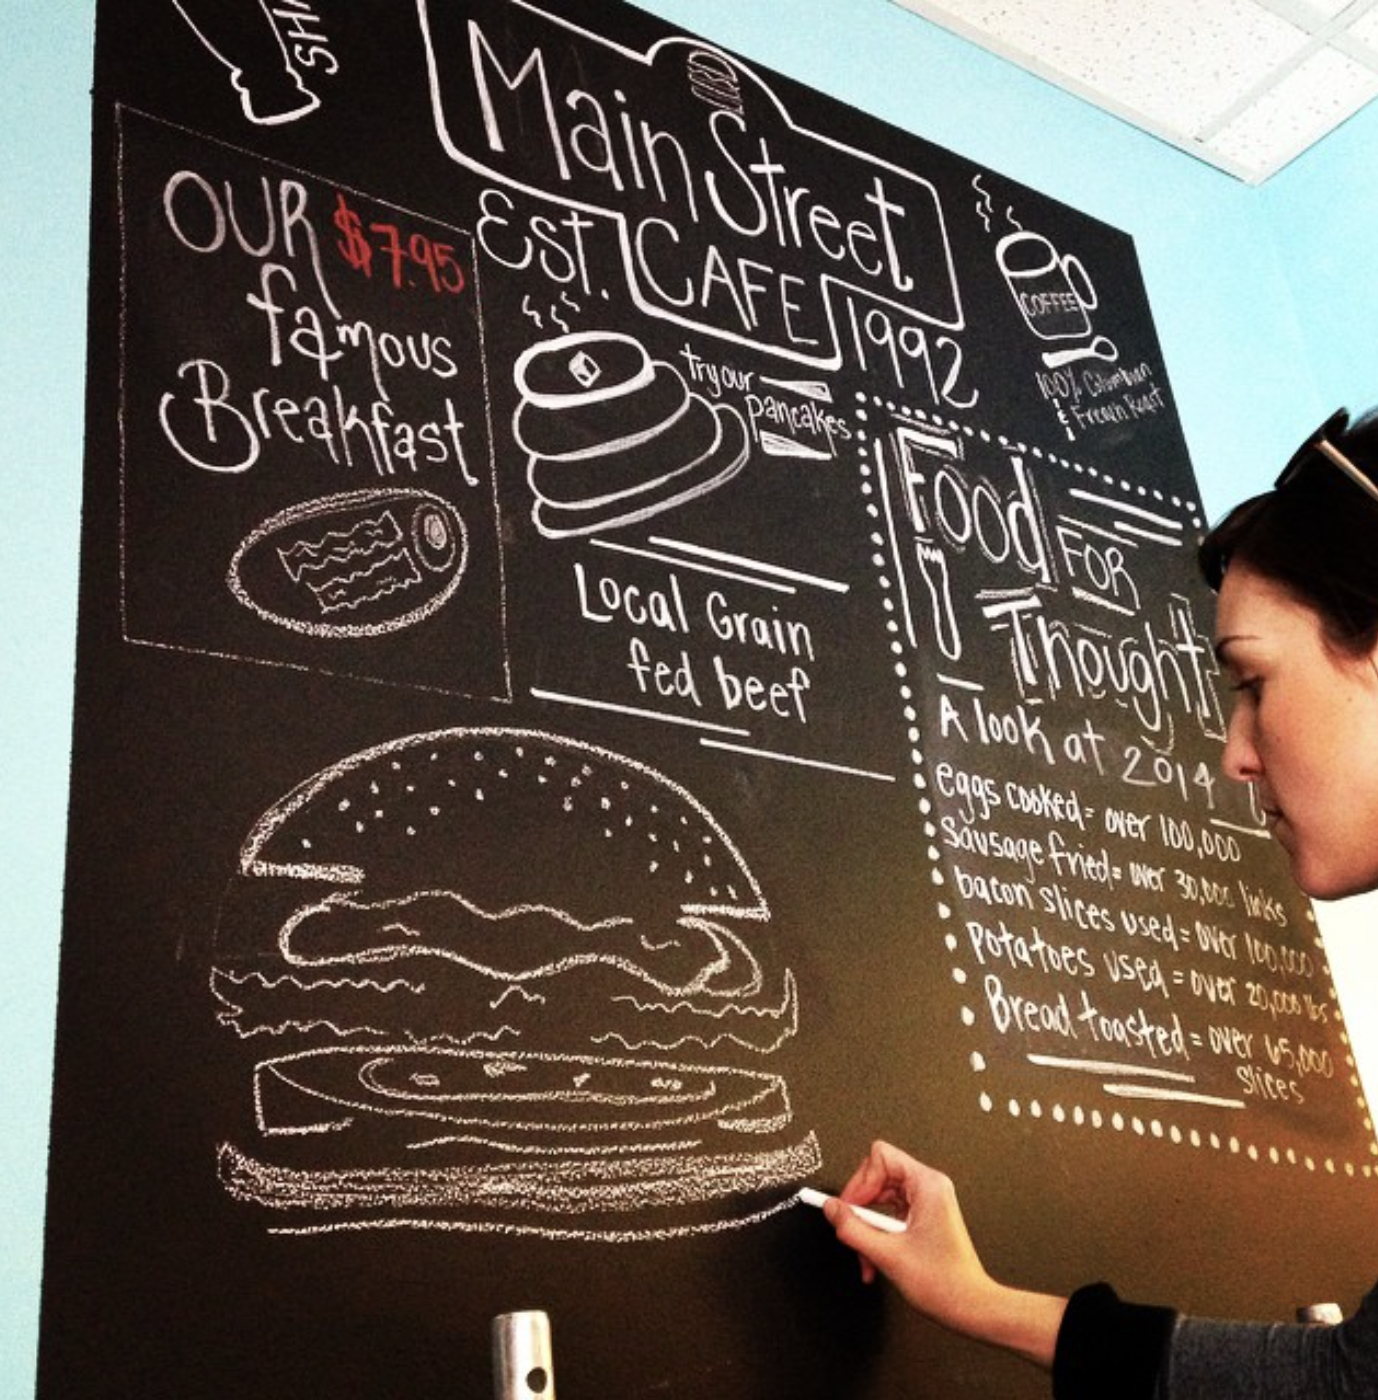 SH
Main Street
CAFE
EST. 1992
OUR $7.95
famous
Breakfast
try our
pancakes
COFFEE
100% Columbian
& French Roast
Local Grain
fed beef
Food FOR
Thought
A look at 2014
eggs cooked = over 100,000
Sausage fried = over 30,000 links
bacon slices used = over 100,000
Potatoes used = over 20,000 lbs
Bread toasted = over 65,000
slices